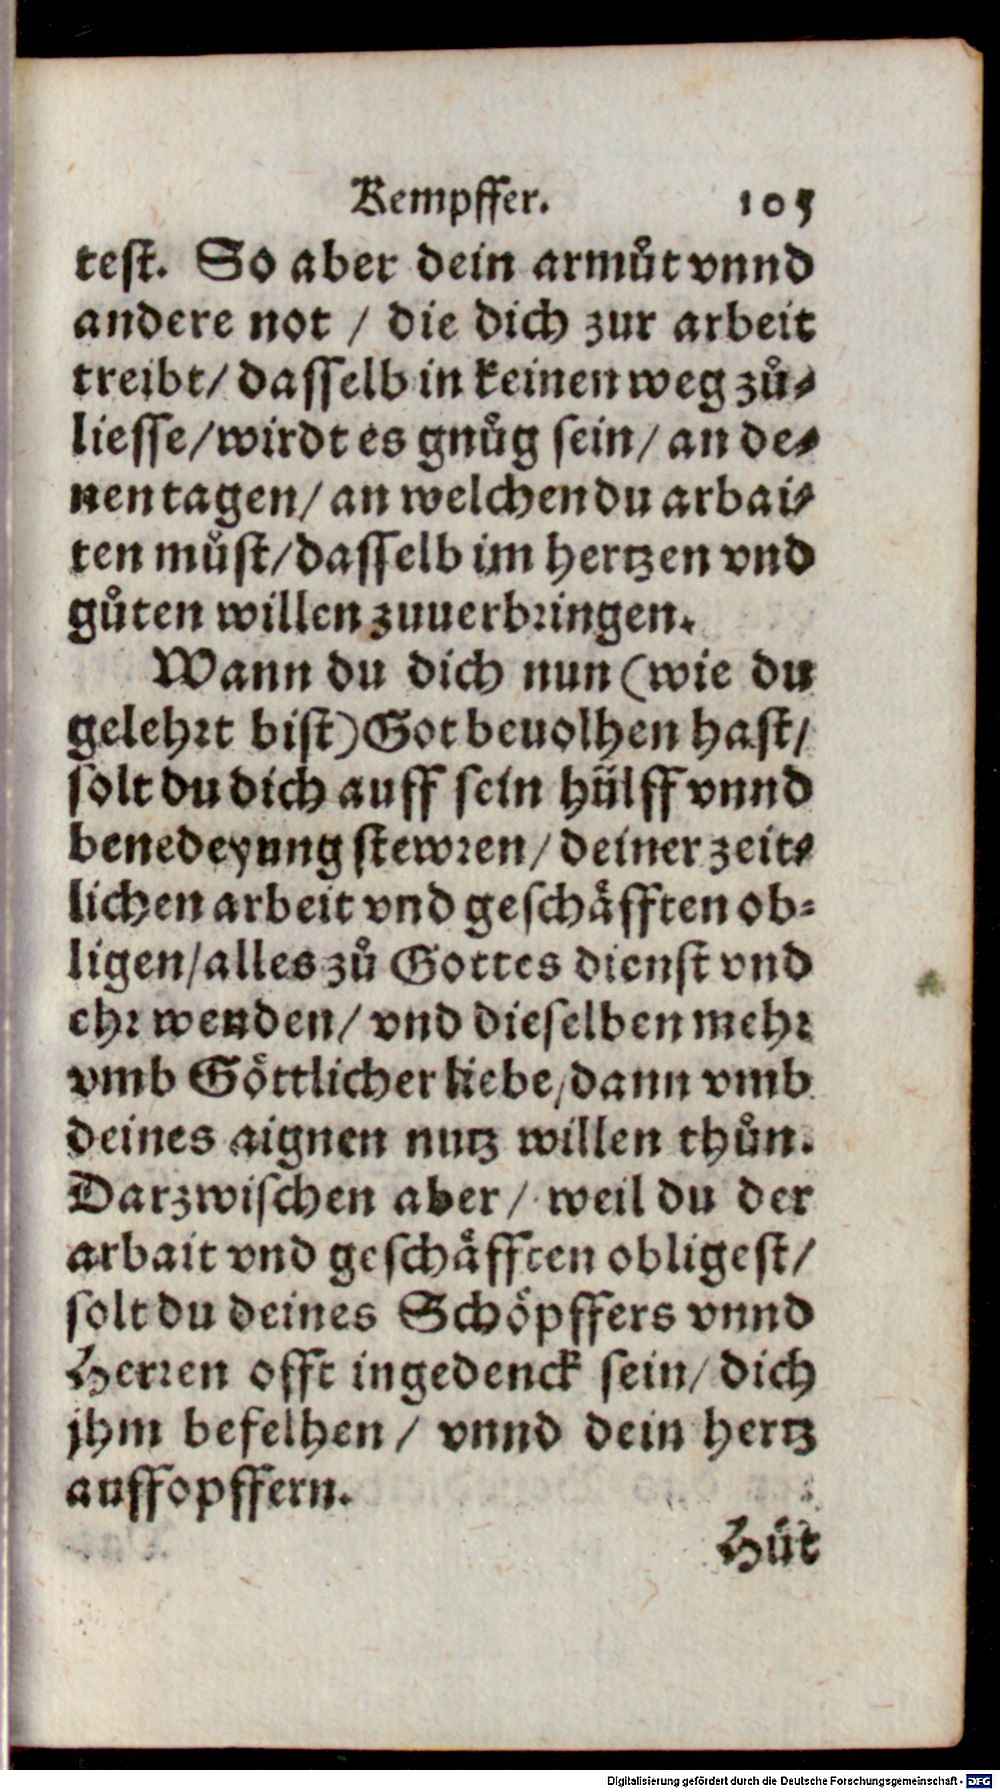 Kempffer. 105
test. So aber dein armůt vnnd
andere not / die dich zur arbeit
treibt/ dasselb in keinen weg zů⸗
liesse/wirdt es gnůg sein/ an de⸗
nen tagen/ an welchen du arbai⸗
ten můst/dasselb im hertzen vnd
gůten willen zuuerbringen.
Wann du dich nun (wie du
gelehrt bist) Got beuolhen hast/
solt du dich auff sein hülff vnnd
benedeyung stewren/ deiner zeit⸗
lichen arbeit vnd geschäfften ob⸗
ligen/alles zů Gottes dienst vnd
ehr wenden/ vnd dieselben mehr
vmb Göttlicher liebe/dann vmb
deines aignen nutz willen thůn.
Darzwischen aber/ weil du der
arbait vnd geschäfften obligest/
solt du deines Schöpffers vnnd
Herren offt ingedenck sein/ dich
jhm befelhen/ vnnd dein hertz
auffopffern.
Hůt
Digitalisierung gefördert durch die Deutsche Forschungsgemeinschaft - DFG